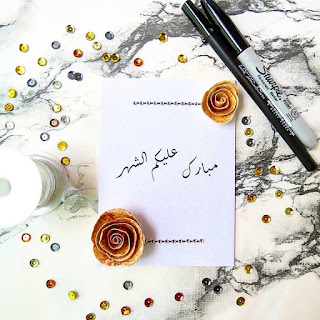 مبارك عليكم الشهر
Sharpie